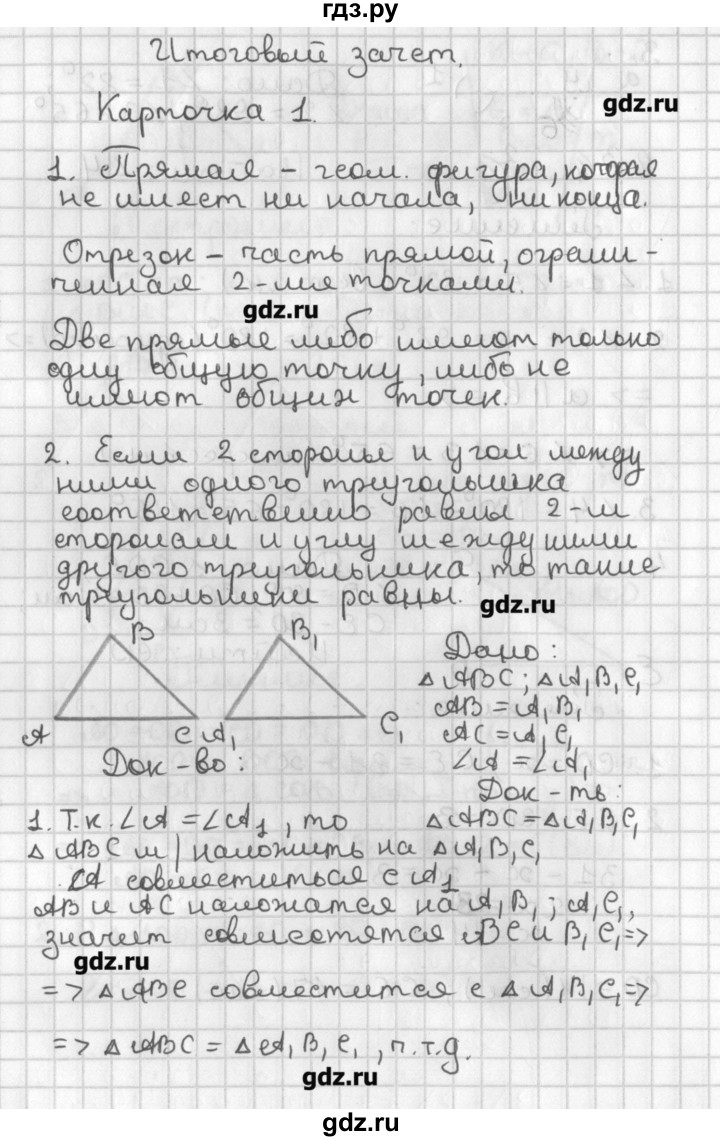 гдз.ру
Итоговый зачет.
Карточка 1.
gdz.ru
1. Прямая – геом. фигура, которая
не имеет ни начала, ни конца.
Отрезок – часть прямой, ограни-
ченная 2-мя точками.
gdz.ru
Две прямые либо имеют только
одну общую точку, либо не
имеют общих точек.
2. Если 2 стороны и угол между
ними одного треугольника
соответственно равны 2-м
сторонам и углу между ними
другого треугольника, то такие
треугольники равны.
gdz.ru
B
B₁
A
C
A₁
C₁
Дано:
△ABC; △A₁B₁C₁
AB = A₁B₁
AC = A₁C₁
∠A = ∠A₁
Док-ть:
△ABC = △A₁B₁C₁
Док-во:
1. Т.к. ∠A = ∠A₁, то
△ABC м/наложить на △A₁B₁C₁
∠A совместиться с A₁
AB и AC наложатся на A₁B₁; A₁C₁,
значит совместятся BC и B₁C₁ =>
gdz.ru
=> △ABC совместится с △A₁B₁C₁ =>
=> △ABC = △A₁B₁C₁, п.т.д.
gdz.ru
gdz.ru